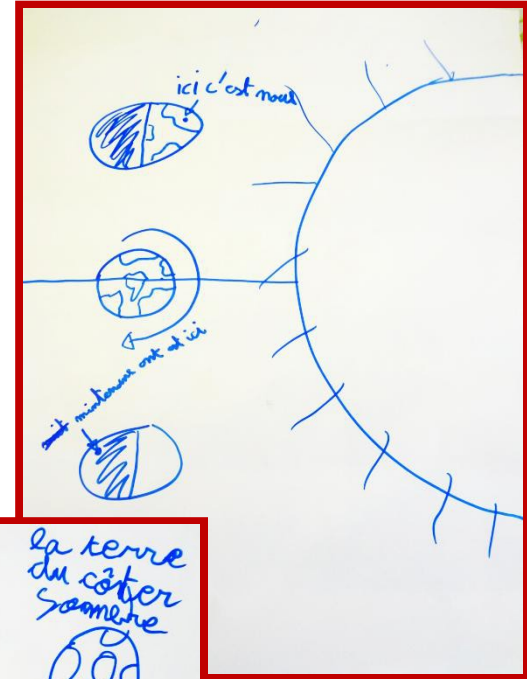 ici c'est nous
mintenant ont est ici
la terre
du côter
sombre